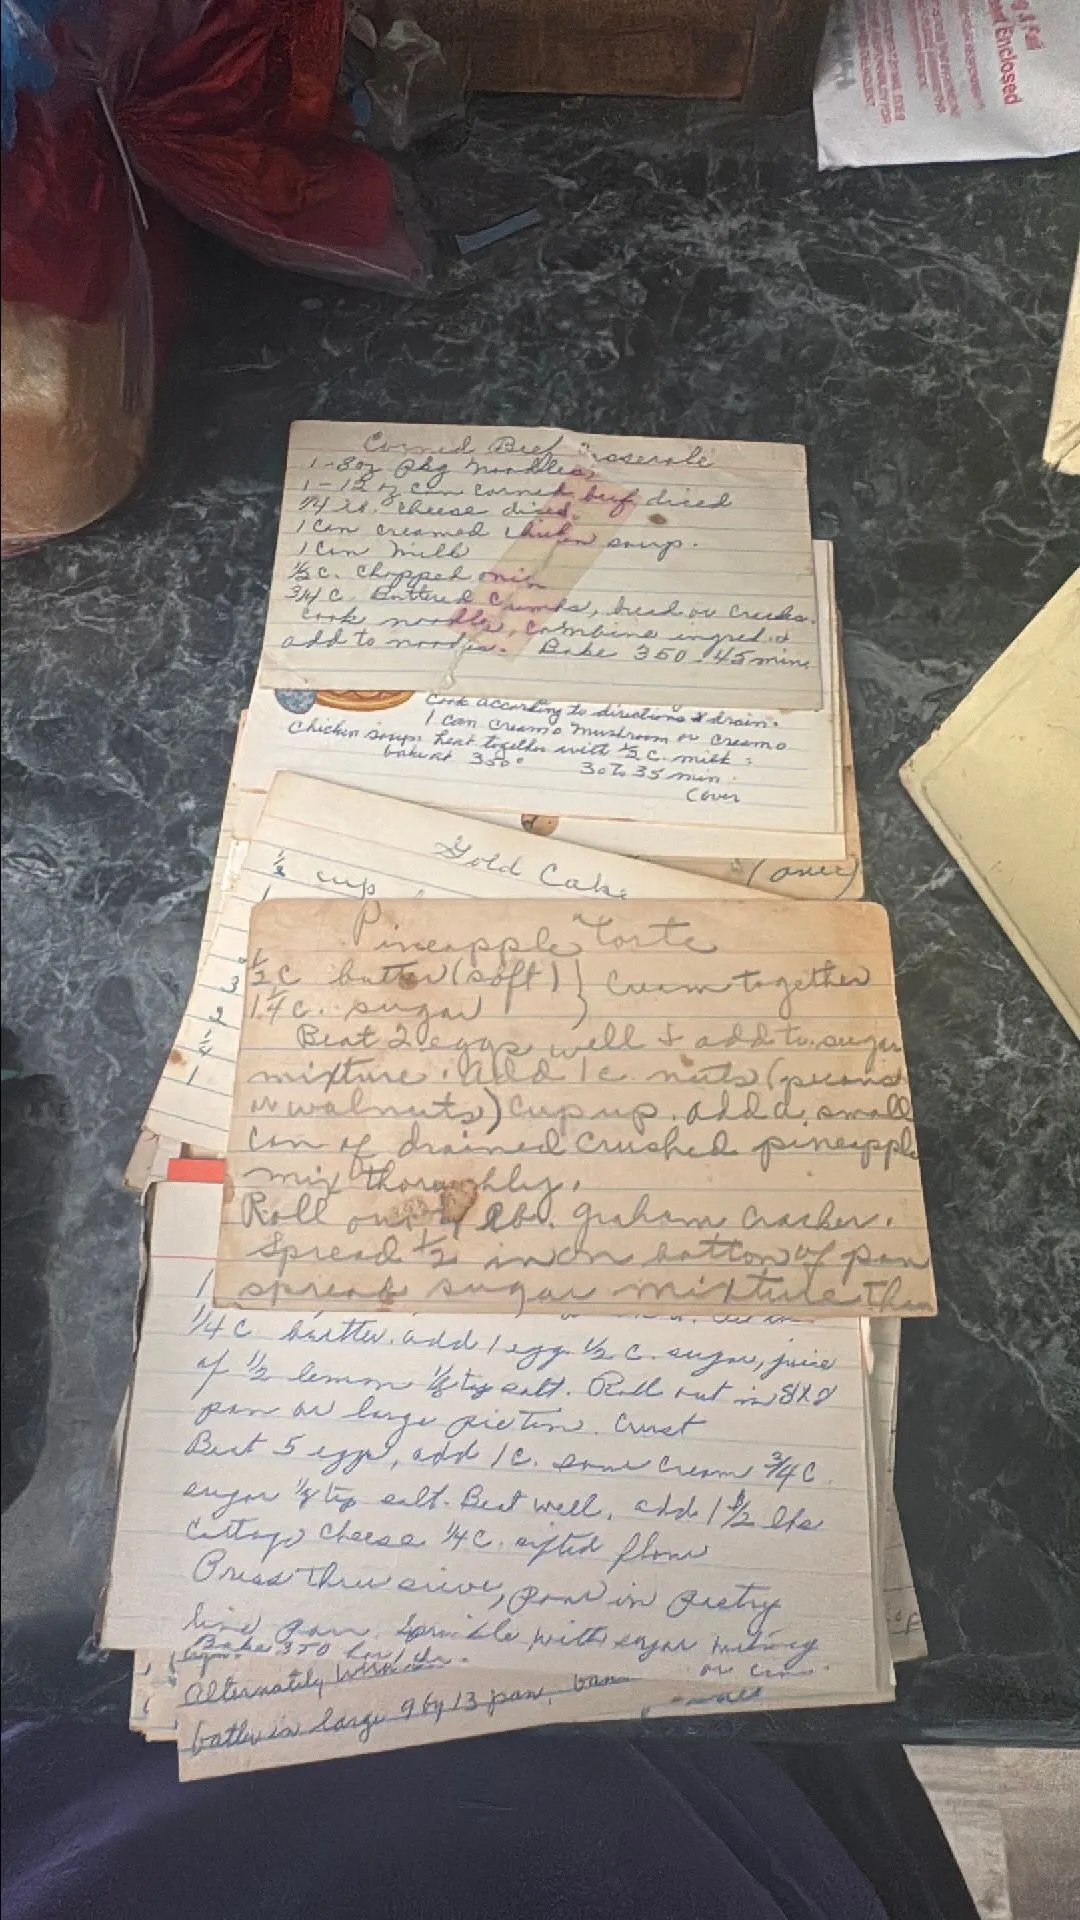 Enclosed
Corned Beef Casserole
1-8oz pkg noodles
1-12 oz can corned beef diced
1/4 lb. cheese diced.
1 can creamed chicken soup.
1 can milk
1/2 c. chopped onion
3/4 c. Buttered Crumbs, bread or
Cook noodles, combine ingred. &
add to noodles. Bake 350 - 45 min
Cook according to directions & drain.
1 can cream o mushroom or cream o
chicken soup. heat together with 1/2 c. milk
bake at 350° 30 to 35 min.
Cover
(over)
Gold Cake
cup
Pineapple Torte
1/2 c butter (soft) } Cream together
1 1/4 c. sugar
Beat 2 eggs well & add to sugar
mixture. Add 1 c. nuts (pecans
or walnuts) cup up. add a small
can of drained crushed pineapple
mix thoroughly.
Roll out lb. graham cracker.
Spread 1/2 in on bottom of pan
spread sugar mixture then
1/4 c butter. add 1 egg 1/2 c. sugar, juice
of 1/2 lemon 1/8 tsp salt. Roll out in 8X8
pan or large pie tin. Crust
Beat 5 eggs, add 1 c. sour cream 3/4 c.
sugar 1/8 tsp salt. Beat well, add 1 1/2 lbs
Cottage cheese 1/4 c. sifted flour
Press thru sieve, pour in pastry
line pan. Sprinkle with sugar nutmeg
or cin.
Bake 350 for hr.
Alternately with
batter in large 9 by 13 pan,